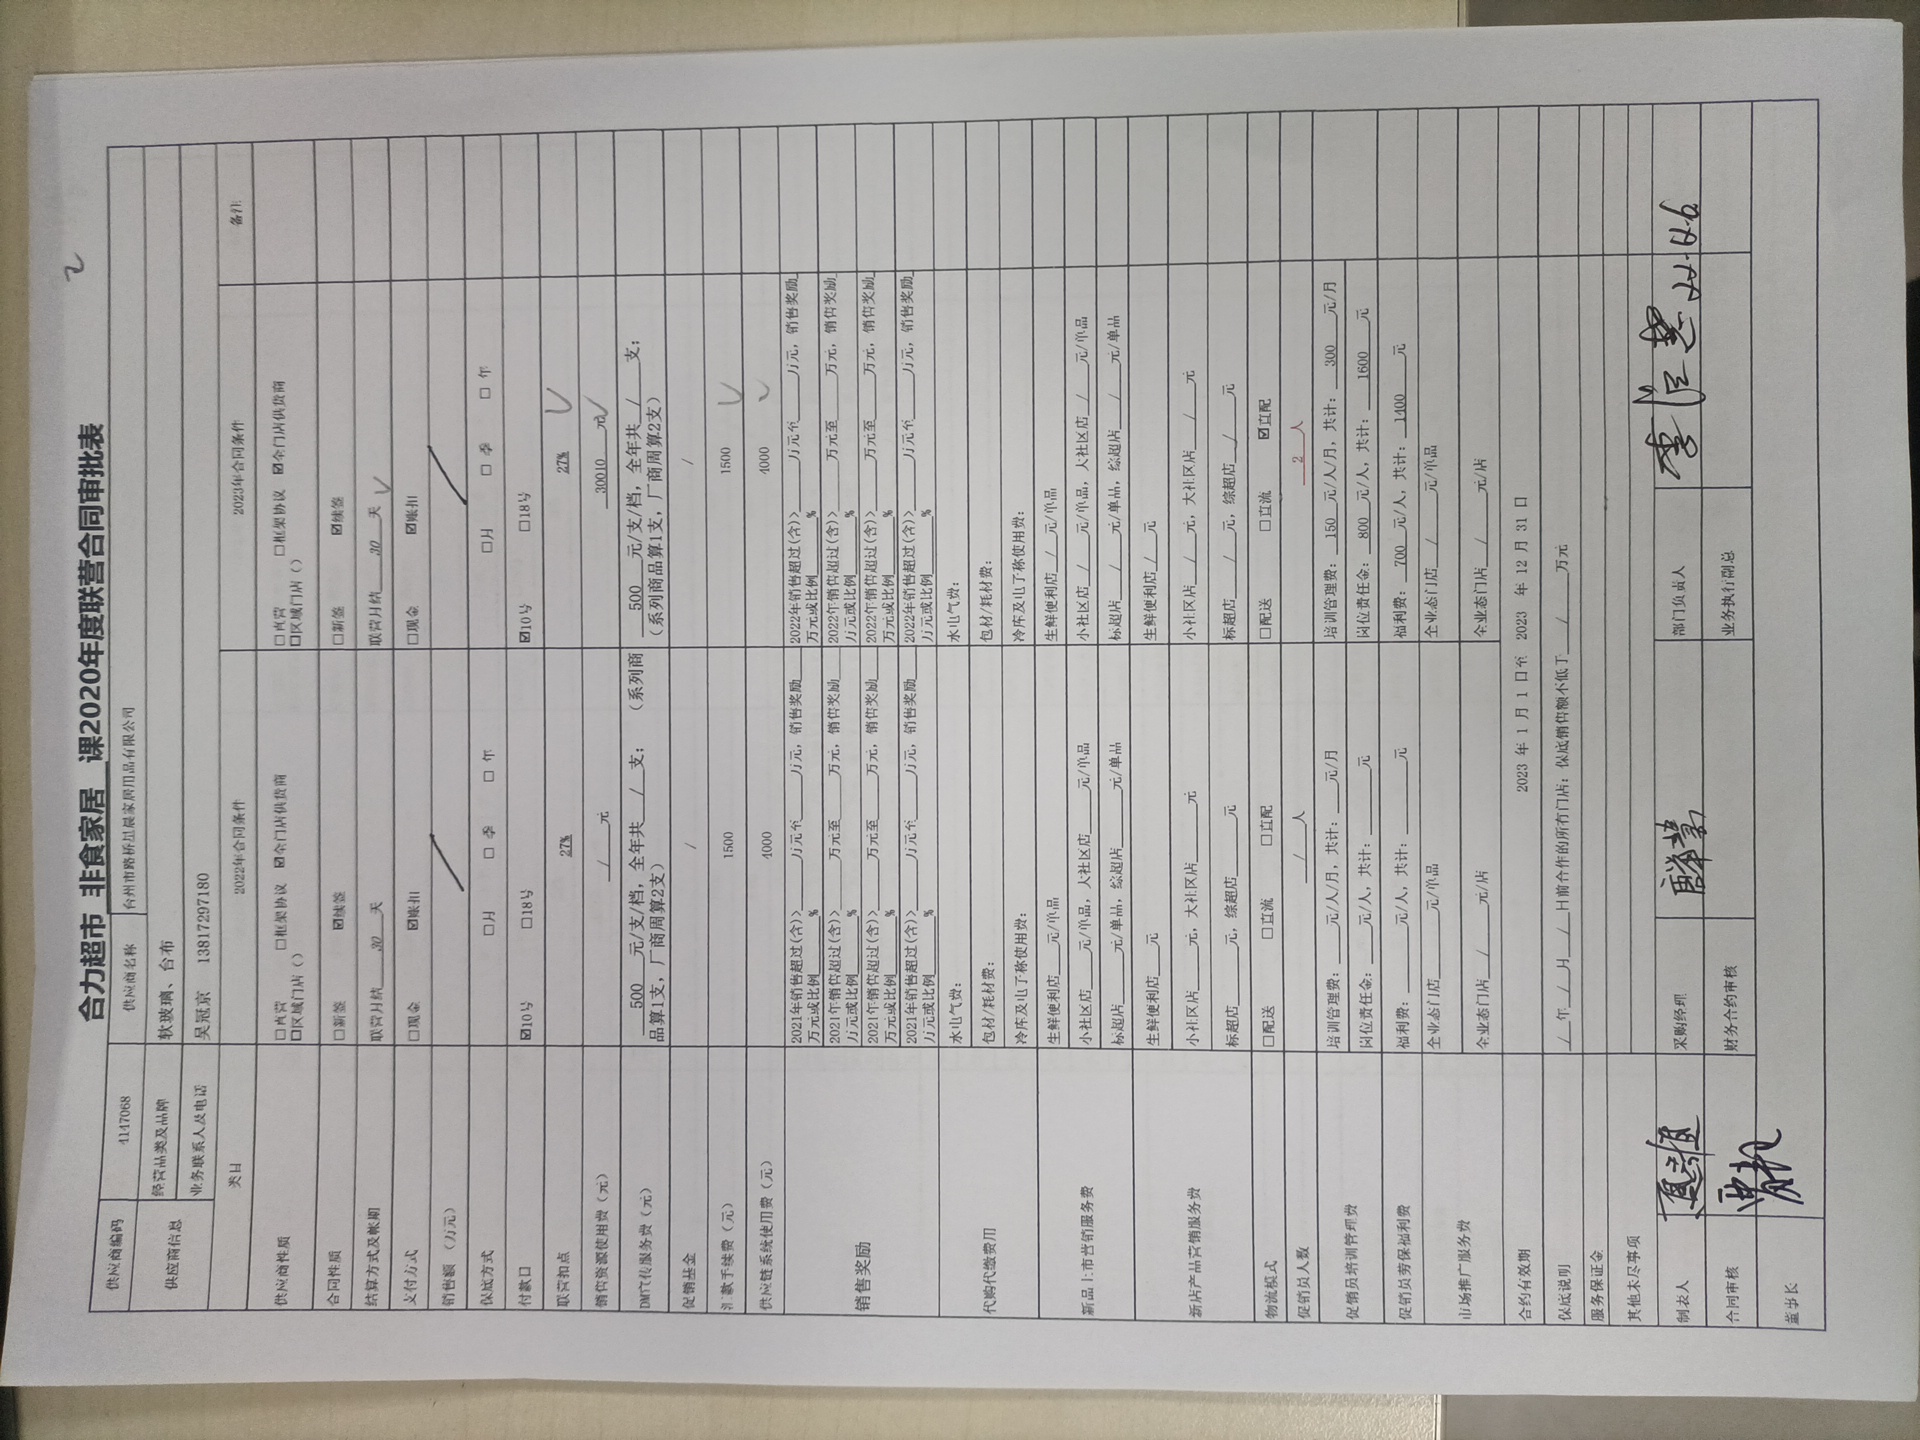 2
合力超市 非食家居 课2020年度联营合同审批表
供应商编码 4147068 供应商名称 台州市路桥昱晨家居用品有限公司
供应商信息 经营品类及品牌 软玻璃、台布
业务联系人及电话 吴冠京 13817297180
类目 2022年合同条件 2023年合同条件 备注
供应商性质 □直营 □框架协议 ☑全门店供货商 □直营 □框架协议 ☑全门店供货商
□区域门店（） □区域门店（）
合同性质 □新签 ☑续签 □新签 ☑续签
结算方式及帐期 联营月结 30 天 联营月结 30 天 √
支付方式 □现金 ☑账扣 □现金 ☑账扣
销售额（万元） / /
保底方式 □月 □季 □年 □月 □季 □年
付款日 ☑10号 □18号 ☑10号 □18号
联营扣点 27% 27% √
销售资源使用费（元） / 元 30010 元 √
DM宣传服务费（元） 500 元/支/档，全年共 / 支；（系列商 500 元/支/档，全年共 / 支；
品算1支，厂商周算2支） （系列商品算1支，厂商周算2支）
促销基金 / /
汇款手续费（元） 1500 1500 √
供应链系统使用费（元） 4000 4000 √
销售奖励 2021年销售超过(含)>___万元至___万元，销售奖励 2022年销售超过(含)>___万元至___万元，销售奖励
万元或比例___% 万元或比例___%
2021年销售超过(含)>___万元至___万元，销售奖励 2022年销售超过(含)>___万元至___万元，销售奖励
万元或比例___% 万元或比例___%
2021年销售超过(含)>___万元至___万元，销售奖励 2022年销售超过(含)>___万元至___万元，销售奖励
万元或比例___% 万元或比例___%
2021年销售超过(含)>___万元至___万元，销售奖励 2022年销售超过(含)>___万元至___万元，销售奖励
万元或比例___% 万元或比例___%
代购代缴费用 水电气费： 水电气费：
包材/耗材费： 包材/耗材费：
冷库及电子称使用费： 冷库及电子称使用费：
新品上市营销服务费 生鲜便利店___元/单品 生鲜便利店 / 元/单品
小社区店___元/单品，大社区店___元/单品 小社区店 / 元/单品，大社区店 / 元/单品
标超店___元/单品，综超店___元/单品 标超店 / 元/单品，综超店 / 元/单品
新店产品营销服务费 生鲜便利店___元 生鲜便利店 / 元
小社区店___元，大社区店___元 小社区店 / 元，大社区店 / 元
标超店___元，综超店___元 标超店 / 元，综超店 / 元
物流模式 □配送 □直流 □直配 □配送 □直流 ☑直配
促销员人数 / 人 2 人
促销员培训管理费 培训管理费：___元/人/月，共计：___元/月 培训管理费： 150 元/人/月，共计： 300 元/月
岗位责任金：___元/人，共计：___元 岗位责任金： 800 元/人，共计： 1600 元
促销员劳保福利费 福利费：___元/人，共计：___元 福利费： 700 元/人，共计： 1400 元
市场推广服务费 全业态门店___元/单品 全业态门店 / 元/单品
全业态门店 / 元/店 全业态门店 / 元/店
合约有效期 2023 年 1 月 1 日至 2023 年 12 月 31 日
保底说明 / 年 / 月 / 日前合作的所有门店；保底销售额不低于 / 万元
服务保证金
其他未尽事项
制表人 采购经理 部门负责人
合同审核 财务合约审核 业务执行副总
董事长